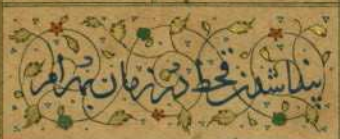 پیدا شدن قحط در زمان بهرام